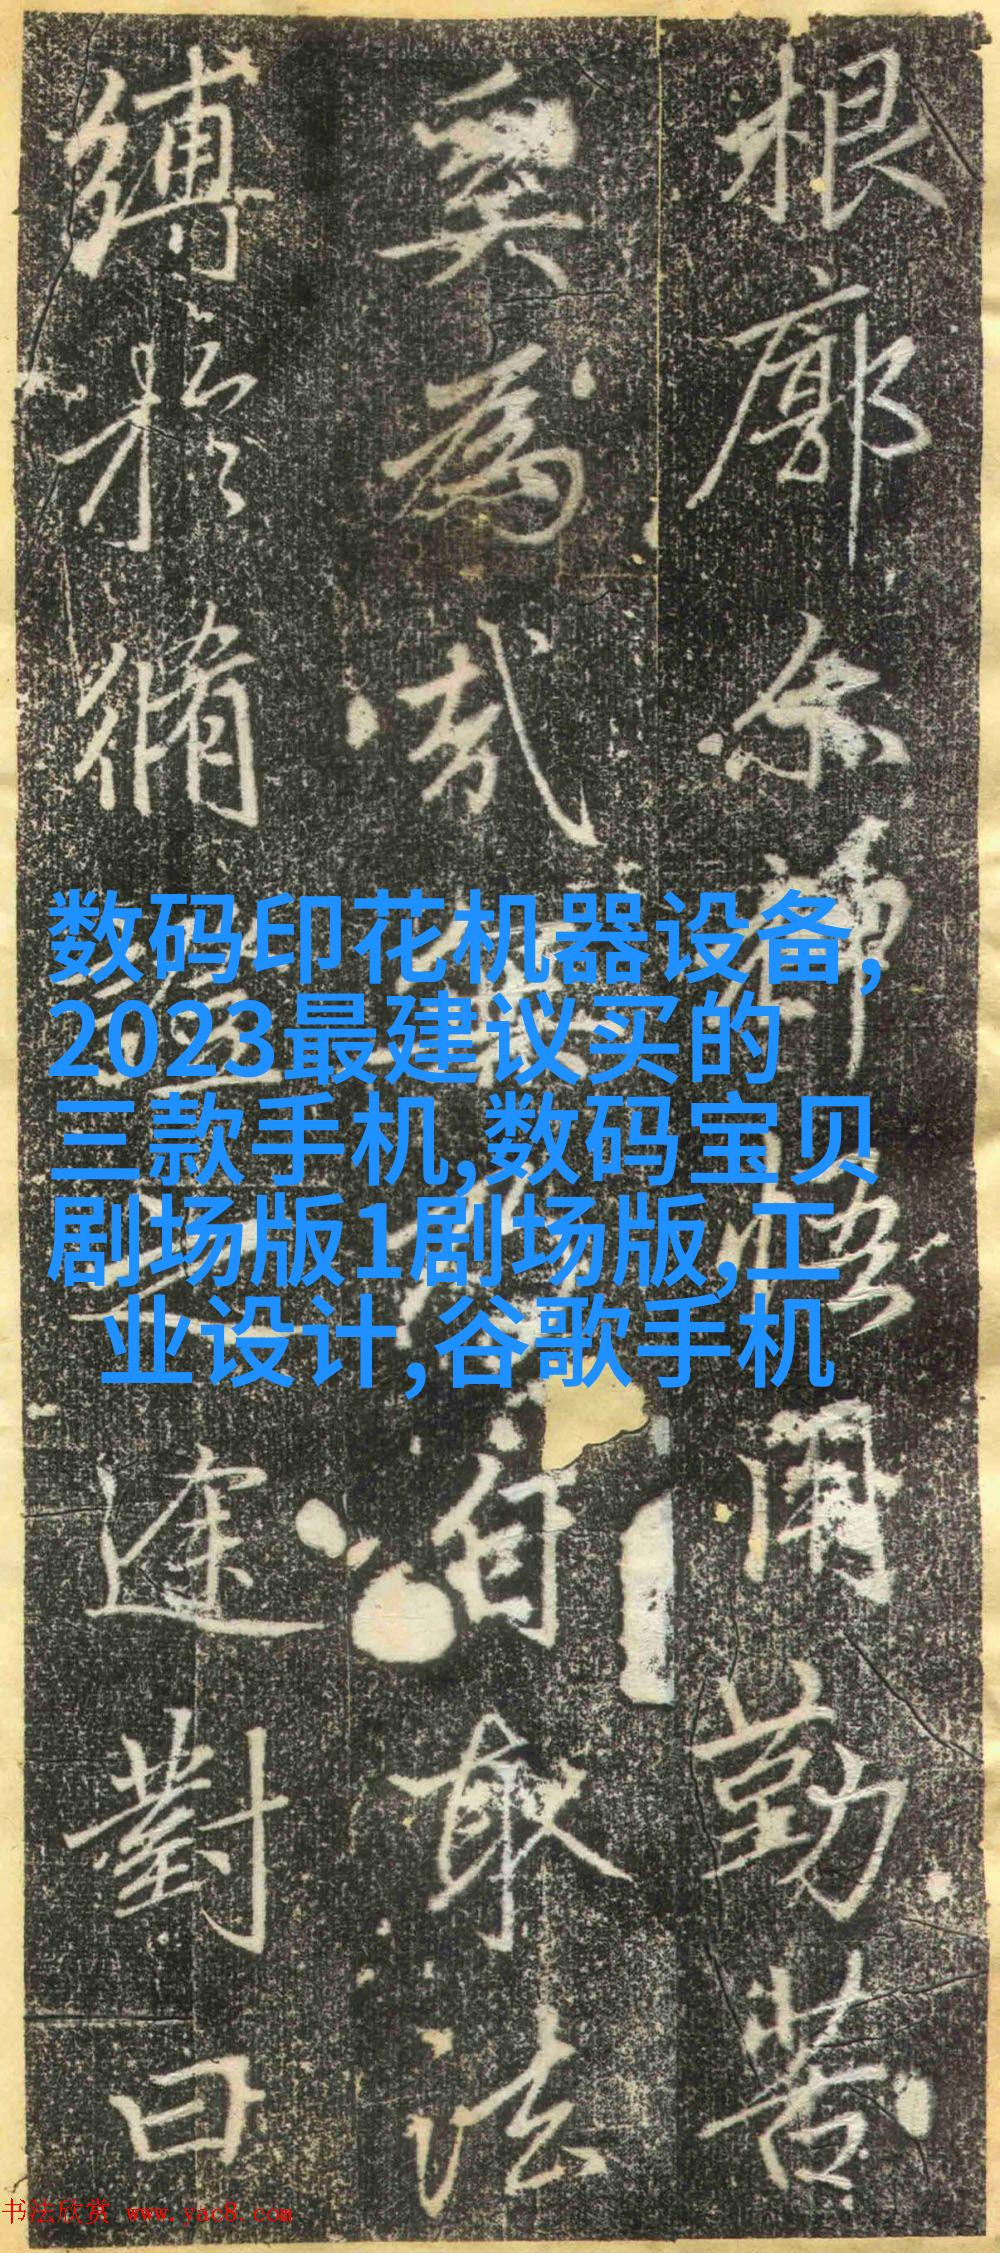 根廓尔悟用勤苦
奚為哉自取法
縛於脩之途對曰
数码印花机器设备,
2023最建议买的
三款手机,数码宝贝
剧场版1剧场版,工
业设计,谷歌手机
书法欣赏 www.yac8.com